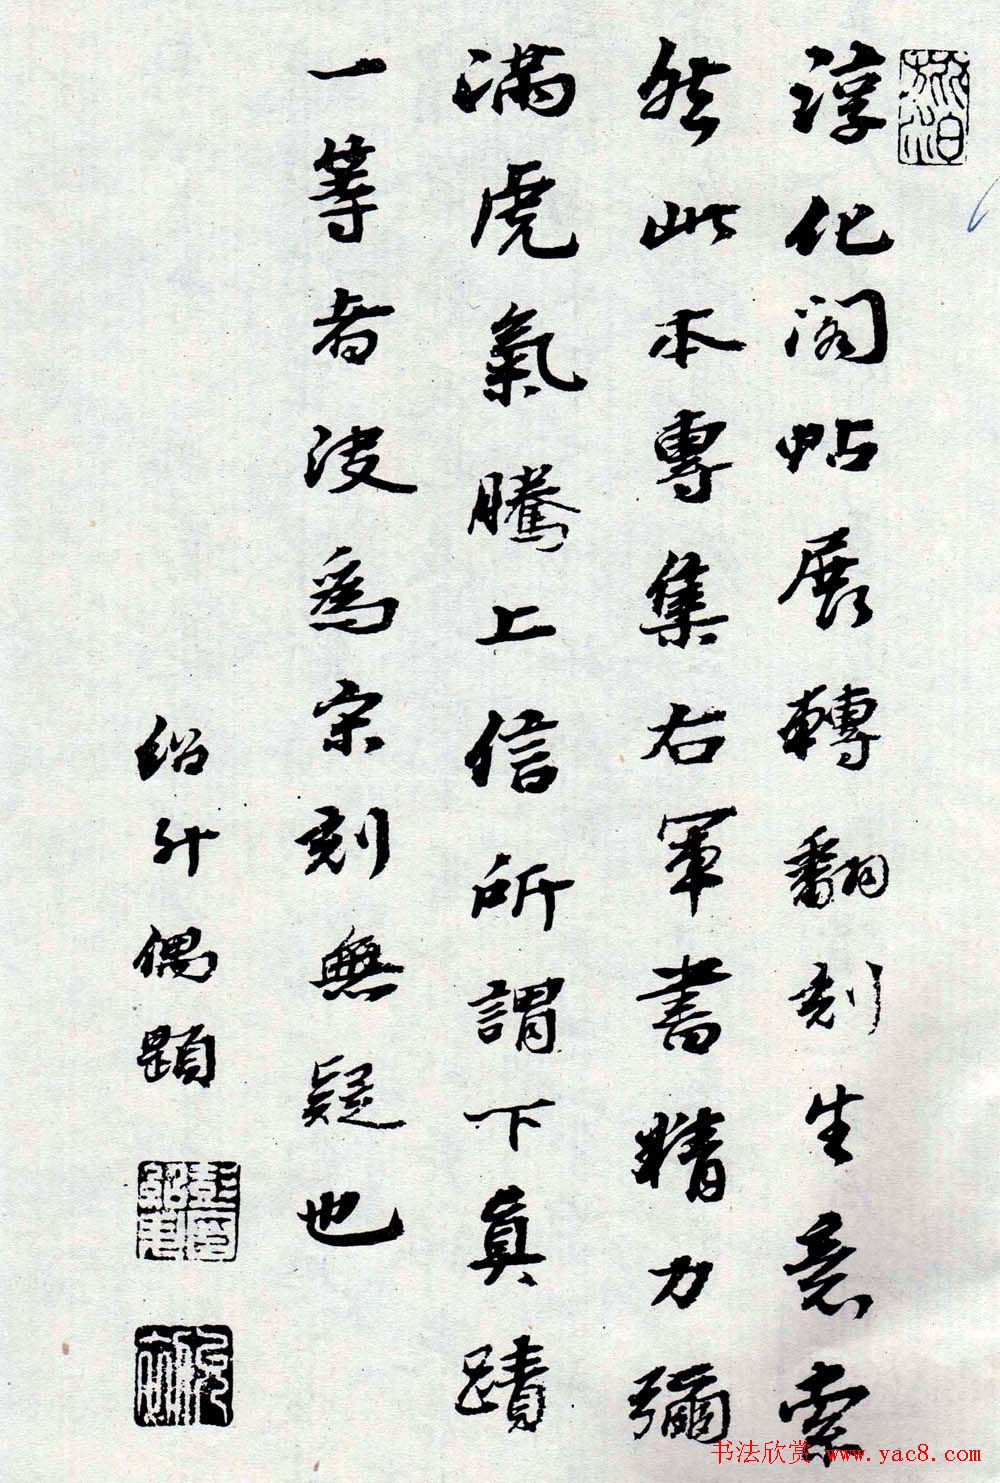 淳化閣帖展轉翻刻生意索
然此本專集右軍書精力彌
滿虎氣騰上信所謂下真蹟
一等者決爲宋刻無疑也
紹升偶題
书法欣赏 www.yac8.com